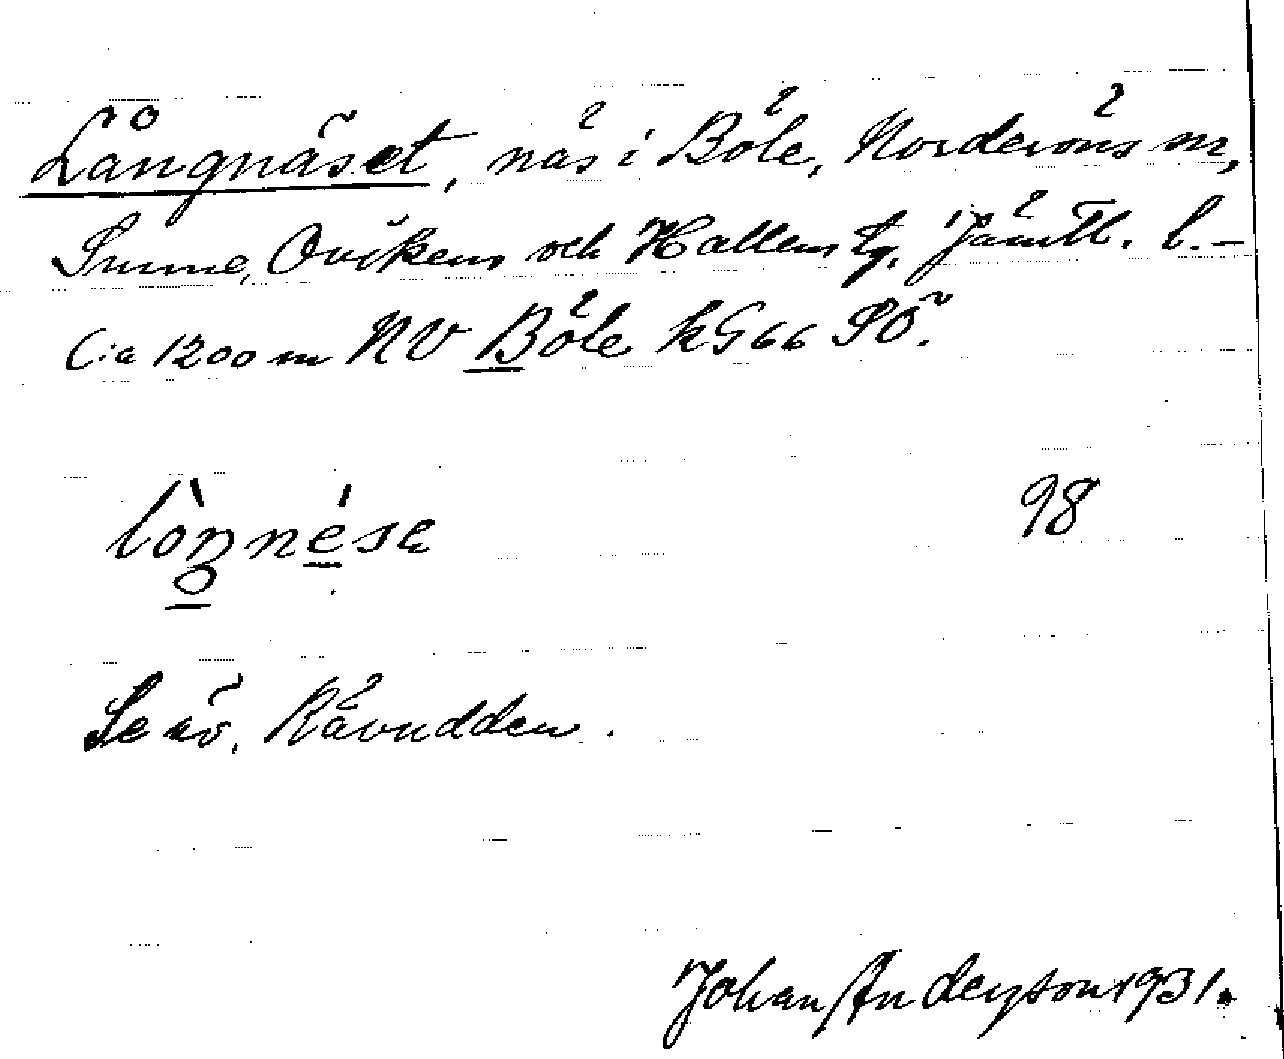 Långnäset, näs i Böle, Norderöns sn,
Sunne, Ovikens och Hallens tg, Jämtl. l. –
Cia 1200 m NV Böle kG66 SÖ.
98
Se äv. Rävudden.
Johan Anderson 1931.